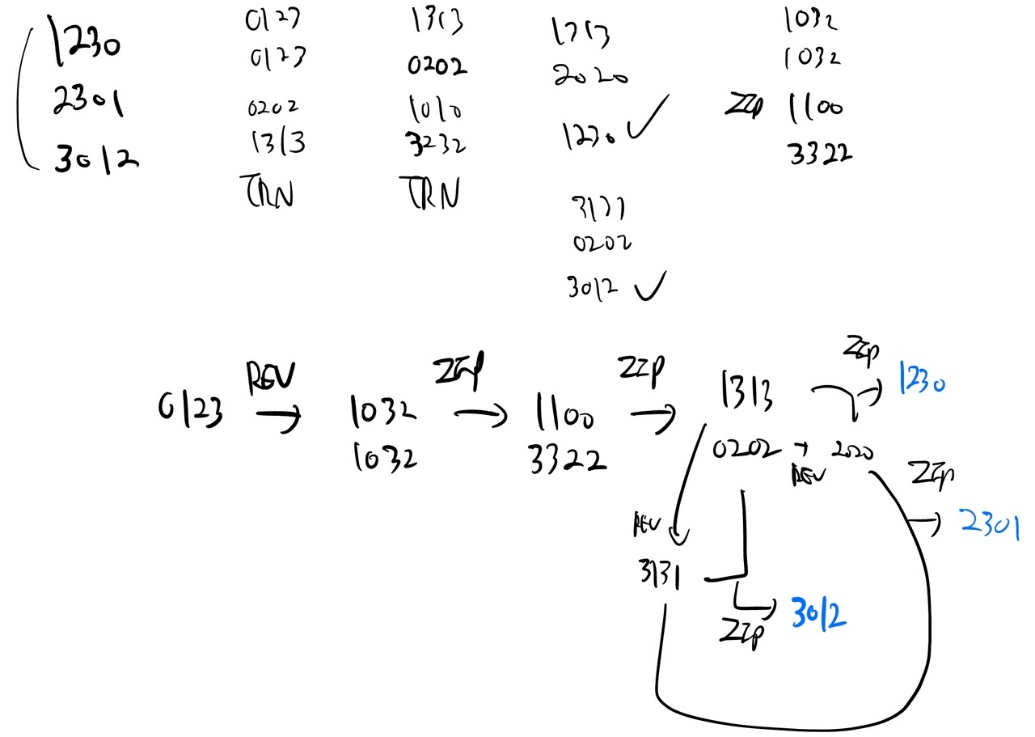 1230
2301
3012
0123
0123
0202
1313
TRN
1313
0202
1010
3232
TRN
1313
2020
1230 ✓
3131
0202
3012 ✓
1032
1032
ZIP 1100
3322
0123 REV → 1032 ZIP → 1100 ZIP → 1313 ZIP → 1230
1032 3322 0202 → REV 2020 ZIP → 2301
REV
3131
ZIP → 3012